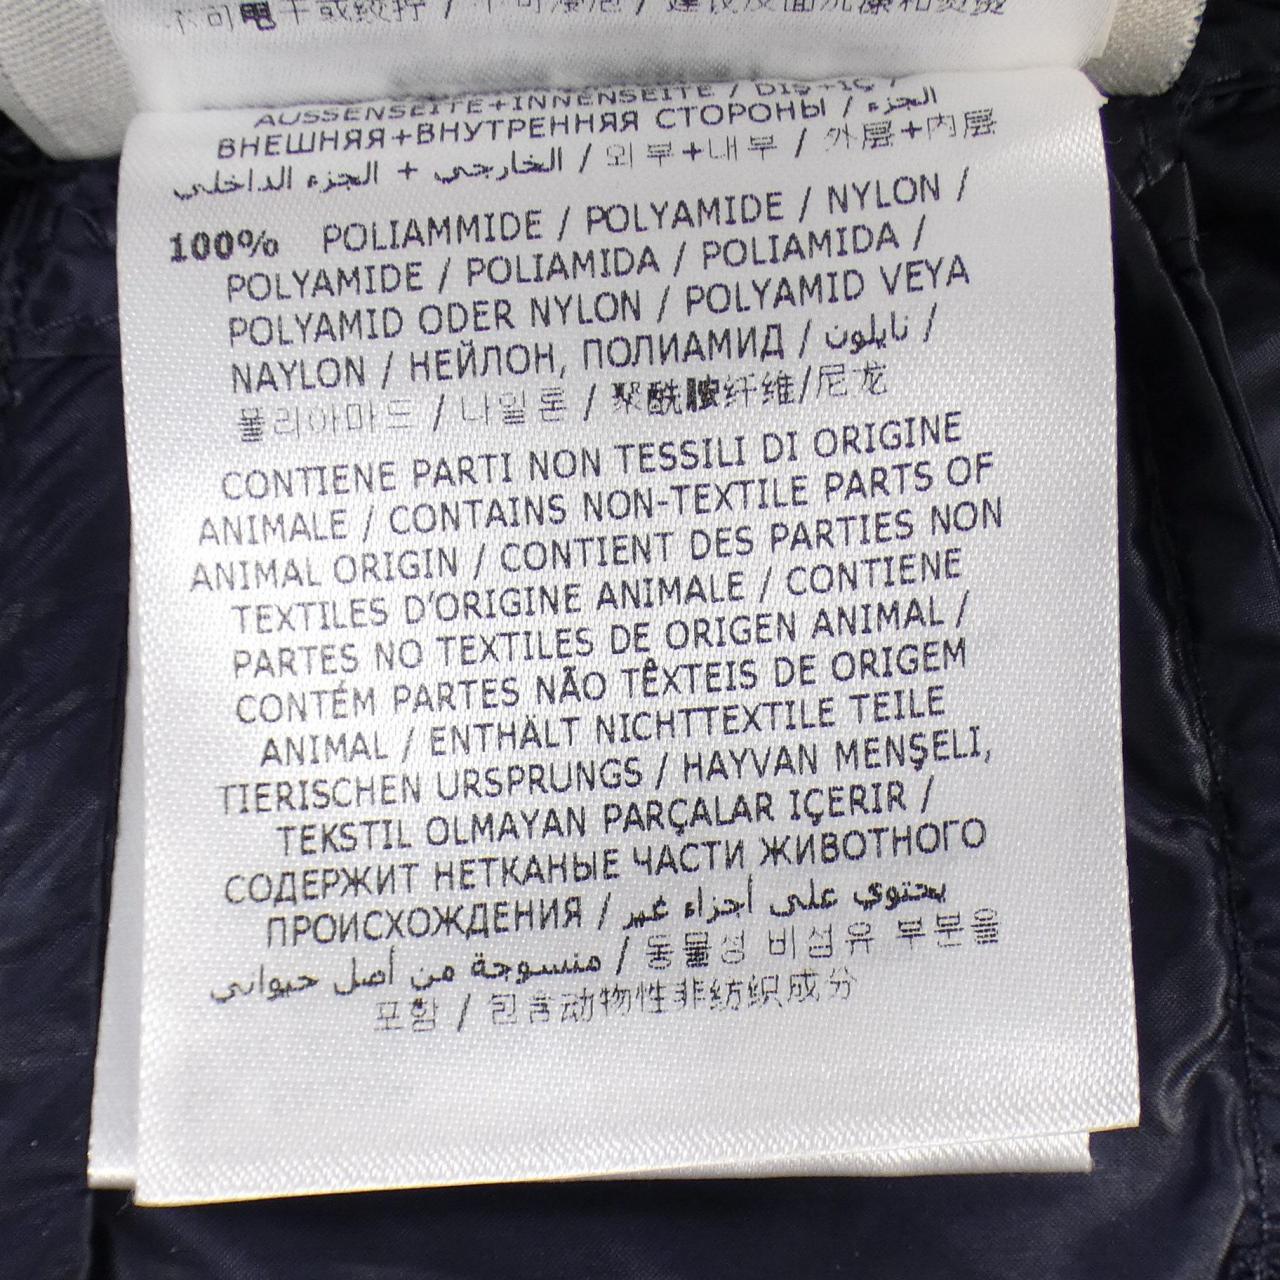 不可甩干或绞拧 / 不可浸泡 / 建议反面洗涤和熨烫
AUSSENSEITE+INNENSEITE / DIŞ+İÇ /
ВНЕШНЯЯ+ВНУТРЕННЯЯ СТОРОНЫ / الجزء
الخارجي + الجزء الداخلي / 외부+내부 / 外层+内层
100% POLIAMMIDE / POLYAMIDE / NYLON /
POLYAMIDE / POLIAMIDA / POLIAMIDA /
POLYAMID ODER NYLON / POLYAMID VEYA
NAYLON / НЕЙЛОН, ПОЛИАМИД / نايلون /
폴리아마드 / 나일론 / 聚酰胺纤维/尼龙
CONTIENE PARTI NON TESSILI DI ORIGINE
ANIMALE / CONTAINS NON-TEXTILE PARTS OF
ANIMAL ORIGIN / CONTIENT DES PARTIES NON
TEXTILES D'ORIGINE ANIMALE / CONTIENE
PARTES NO TEXTILES DE ORIGEN ANIMAL /
CONTÉM PARTES NÃO TÊXTEIS DE ORIGEM
ANIMAL / ENTHÄLT NICHTTEXTILE TEILE
TIERISCHEN URSPRUNGS / HAYVAN MENŞELI,
TEKSTIL OLMAYAN PARÇALAR IÇERIR /
СОДЕРЖИТ НЕТКАНЫЕ ЧАСТИ ЖИВОТНОГО
ПРОИСХОЖДЕНИЯ / يحتوي على أجزاء غير
منسوجة من أصل حيواني / 동물성 비섬유 부분을
포함 / 包含动物性非纺织成分